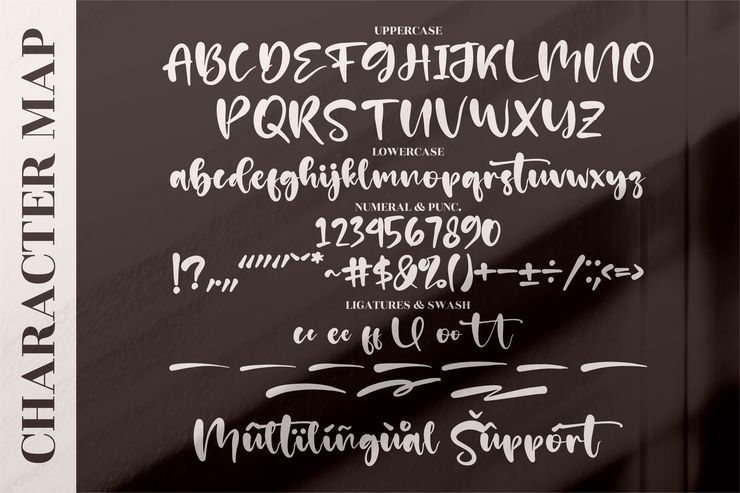 CHARACTER MAP
UPPERCASE
ABCDEFGHIJKLMNO
PQRSTUVWXYZ
LOWERCASE
abcdefghijklmnopqrstuvwxyz
NUMERAL & PUNC.
1234567890
!?.,„“”‘’"~*~#$&%()+−±÷/:;<=>
LIGATURES & SWASH
cc ee ff ll oo tt
Mûltïlíñgùål Šûppórt